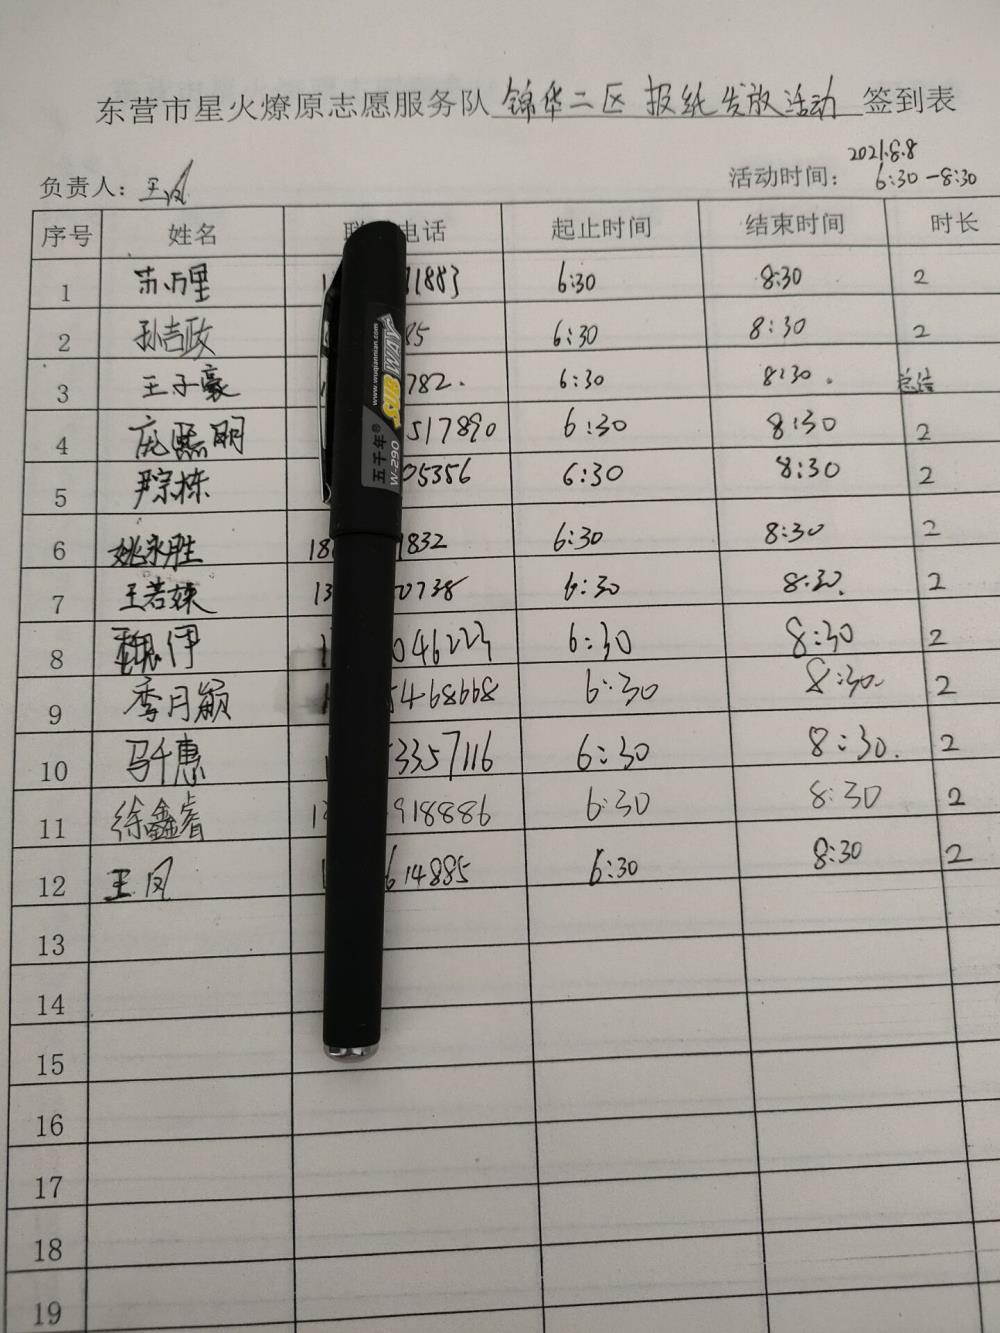 东营市星火燎原志愿服务队 锦华二区 报纸发放活动 签到表
负责人: 王凤 活动时间: 2021.8.8
6:30-8:30
序号 姓名 联 电话 起止时间 结束时间 时长
1 苏万里 1 1883 6:30 8:30 2
2 孙吉政 85 6:30 8:30 2
3 王子豪 782. 6:30 8:30. 总结
4 庞熙明 517890 6:30 8:30 2
5 尹宗栋 05356 6:30 8:30 2
6 姚永胜 18 1832 6:30 8:30 2
7 王若竦 13 0738 6:30 8:30. 2
8 魏伊 1 046223 6:30 8:30 2
9 季月颖 1 5468668 6:30 8:30. 2
10 马千惠 1 3357116 6:30 8:30. 2
11 徐鑫睿 17 918886 6:30 8:30 2
12 王凤 1 614885 6:30 8:30 2
13
14
15
16
17
18
19
www.wuqiannian.com
五千年®
W-290